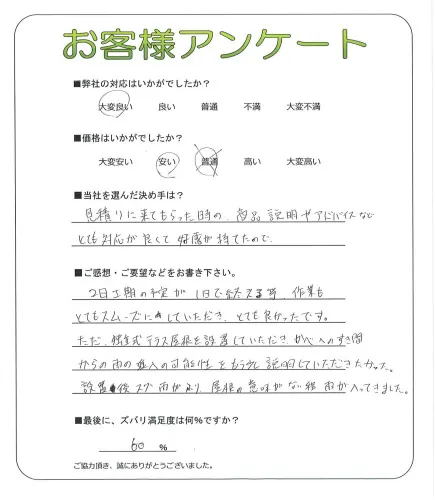 お客様アンケート
■弊社の対応はいかがでしたか?
大変良い 良い 普通 不満 大変不満
■価格はいかがでしたか?
大変安い 安い 普通 高い 大変高い
■当社を選んだ決め手は?
見積りに来てもらった時の、商品説明やアドバイスなど
とても対応が良くて好感が持てたので、
■ご感想・ご要望などをお書き下さい。
2日工期の予定が1日で終える等、作業も
とてもスムーズにしていただき、とても良かったです。
ただ、独立式テラス屋根を設置していただき、かべへのすき間
からの雨の進入の可能性をもう少し説明していただきたかった。
設置後スグ雨がふり、屋根の意味がない程雨が入ってきました。
■最後に、ズバリ満足度は何%ですか?
60 %
ご協力頂き、誠にありがとうございました。